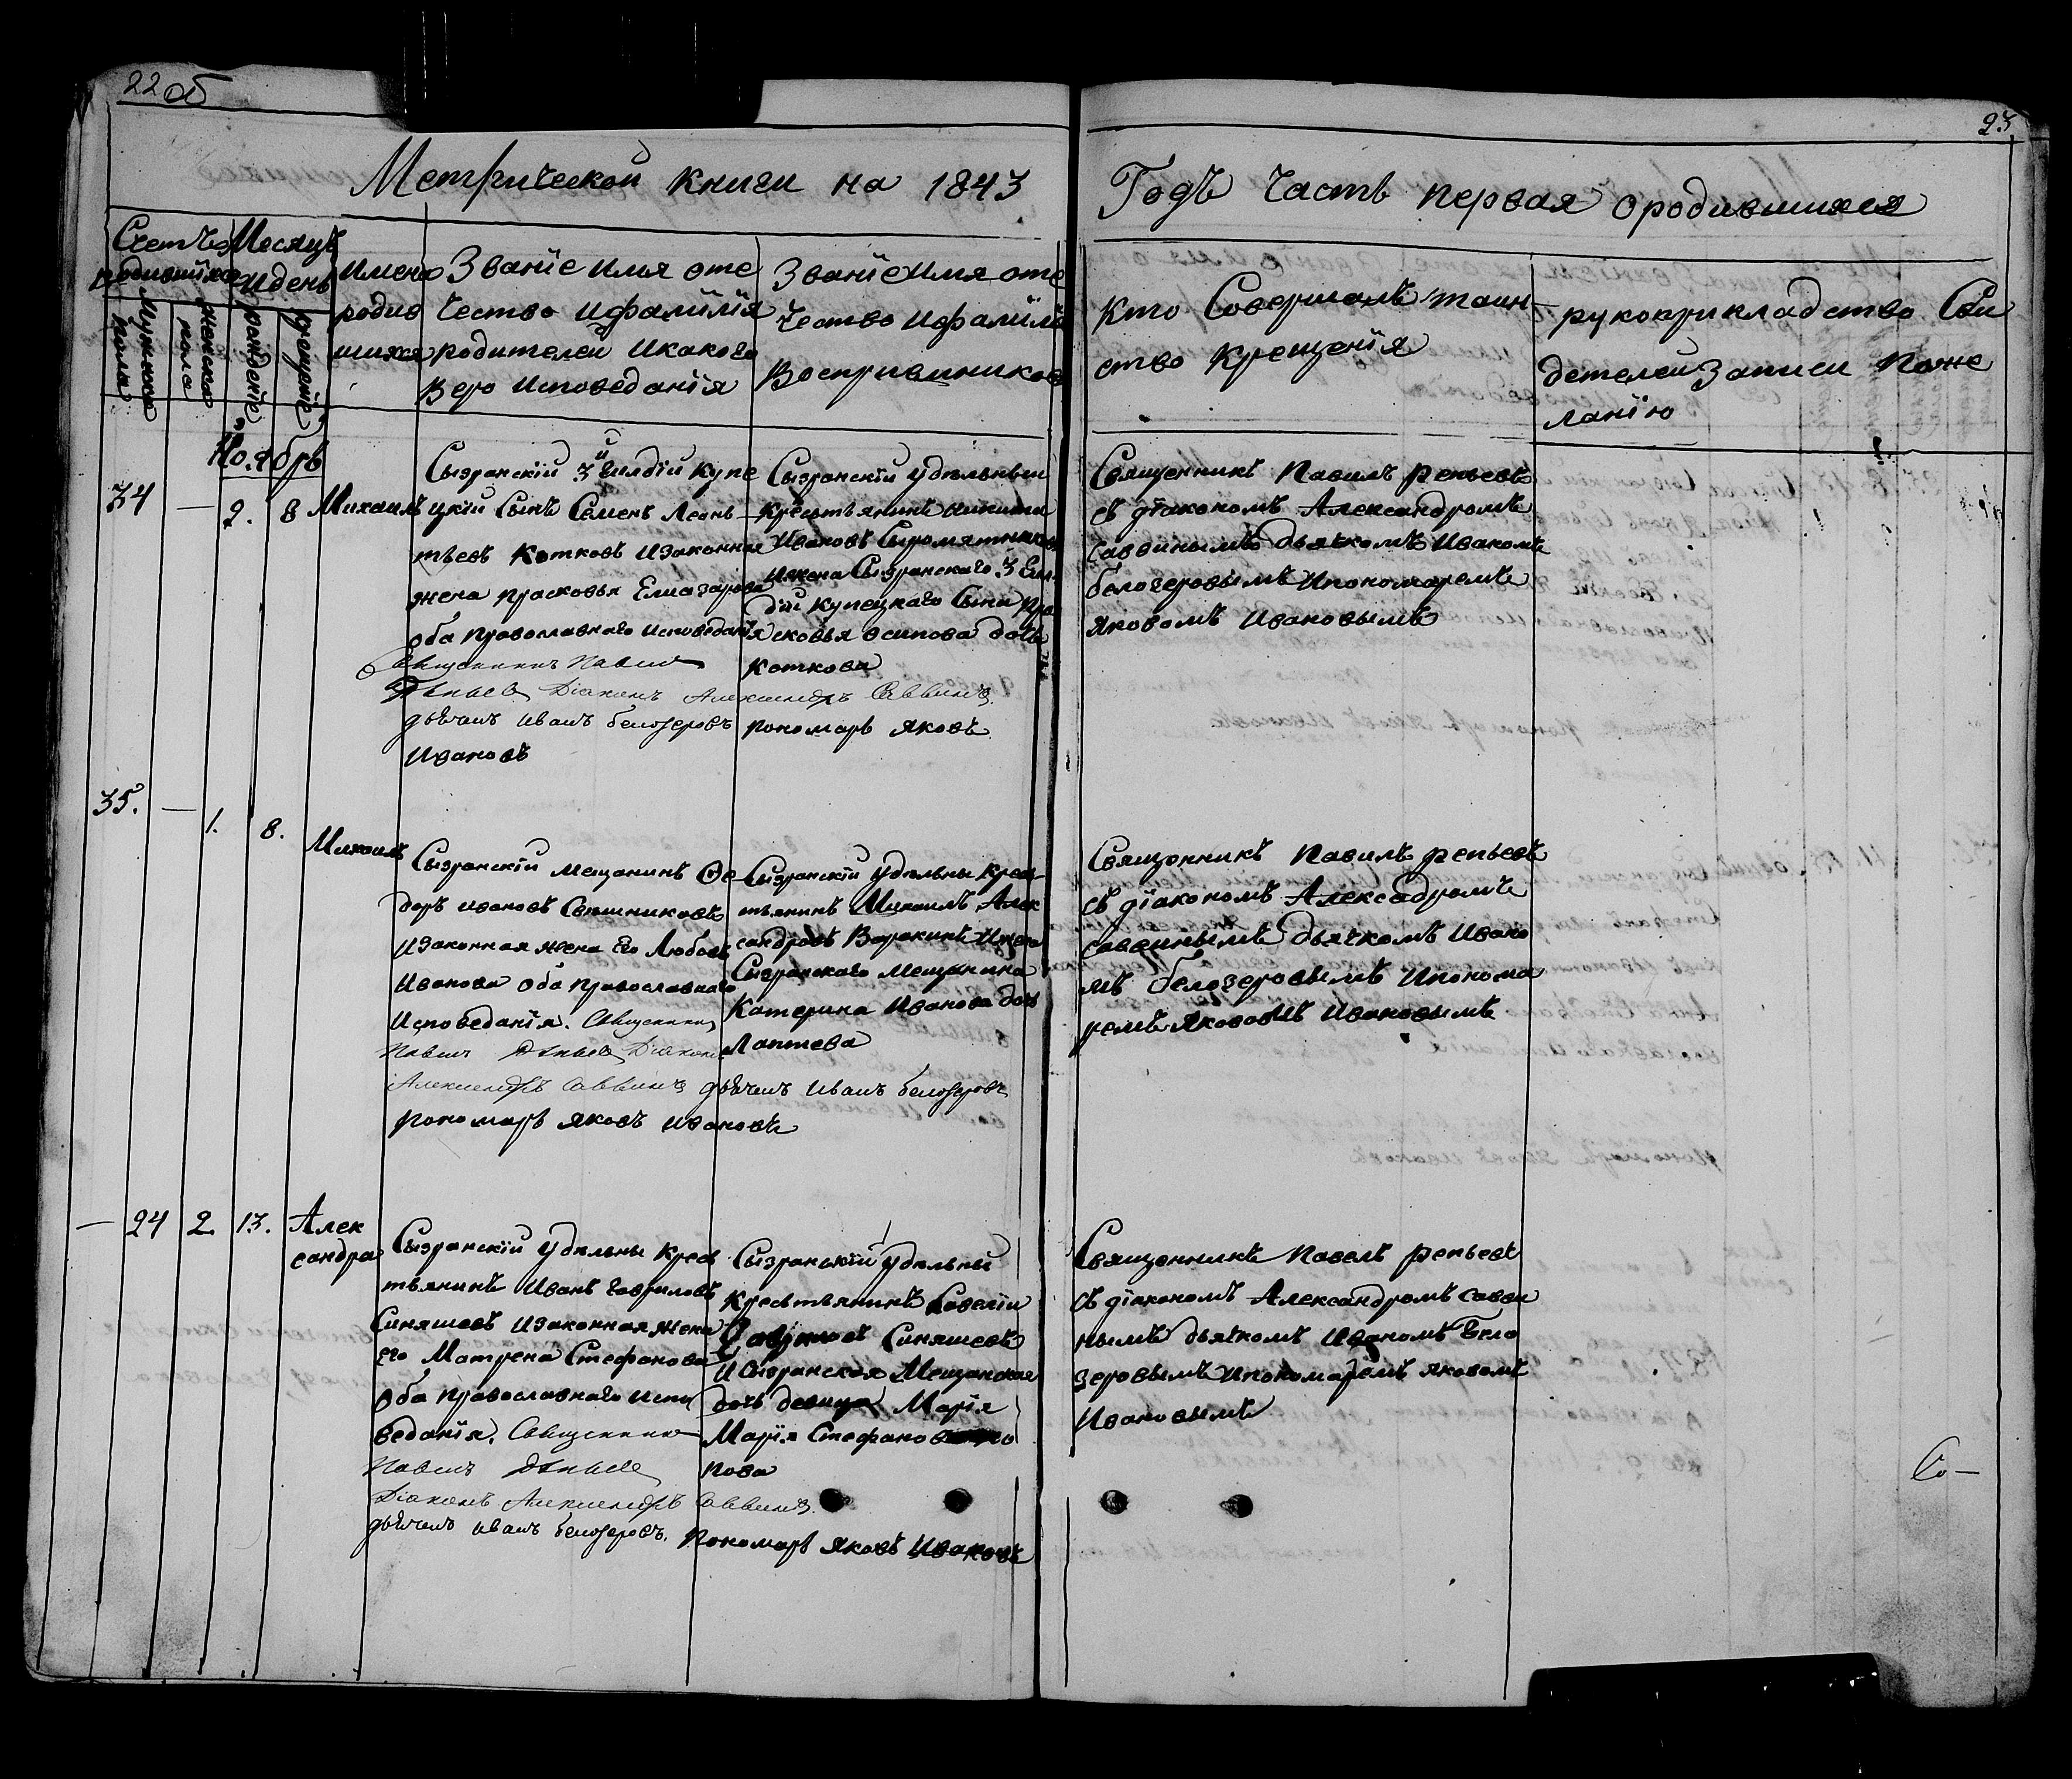 22 об
23
Метрической книги на 1843
Годъ Часть первая ородившихся
Счетъ
родившихся
Месяцъ
Идень
Мужеска
пола
женска
пола
рожденіе
крещеніе
Имена
родив
шихся
Званіе Имя оте
чество Ифамилія
родителей Икакого
Веро Исповеданія
Званіе Имя оте
чество Ифамилія
Воспріемниковъ
Кто Совершалъ таин
ство Крещенія
рукоприкладство Сви
детелей Записи Поже
ланію
Ноябрь
34 — 2. 8 Михаилъ
Сызранскій 3й гилдіи Купе
цкій Сынъ Семенъ Леонь
тьевъ Котковъ Изаконная
жена Прасковья Елиазарова
оба Православнаго Исповеданія
Священникъ Павилъ
Репьевъ Діаконъ Александръ Саввинъ
дьячекъ Иванъ белозеровъ
пономарь Яковъ
Ивановъ
Сызранскій Удѣльный
Крестьянинъ Никита
Ивановъ Сыромятниковъ
Ижена Сызранскаго 3 Гил
діи Купецкаго Сына Пра
сковья Осипова дочь
Коткова
Священникъ Павилъ репьевъ
съ діакономъ Александромъ
Саввинымъ дьячкомъ Иваномъ
белозеровымъ Ипономаремъ
Яковомъ Ивановымъ
35. — 1. 8. Михаилъ
Сызранскій мещанинъ Фе
доръ Ивановъ Свешниковъ
Изаконная жена Его Любовь
Иванова Оба Православнаго
Исповеданія. Священникъ
Павилъ Репьевъ Діаконъ
Александръ Саввинъ дьячекъ Иванъ белозеровъ
Пономарь Яковъ Ивановъ
Сызранскій Удѣльны Крес
тьянинъ Михаилъ Алек
сандровъ Воракинъ Ижена
Сызранскаго Мещанина
Катерина Иванова дочь
Лаптева
Священникъ Павилъ репьевъ
съ діакономъ Алексадромъ
Саввинымъ дьячкомъ Ивано
мъ белозеровымъ Ипонома
ремъ Яковомъ Ивановымъ
— 24 2. 13. Алек
сандра
Сызранскій Удѣльны Крес
тьянинъ Иванъ Гавриловъ
Синяшевъ Изаконная жена
Его Матрена Стефанова
Оба Православнаго Испо
веданія. Священникъ
Павилъ Репьевъ
Діаконъ Александръ Саввинъ
дьячекъ Иванъ белозеровъ.
Пономарь Яковъ Ивановъ
Сызранскій Удѣльны
Крестьянинъ Савелій
Синяшевъ
И Сызранская Мещанская
дочь девица Марія
Марія Стефанов
пова
Священникъ Павелъ репьевъ
съ діакономъ Александромъ Савви
нымъ дьячкомъ Иваномъ Бело
зеровымъ Ипономаремъ Яковомъ
Ивановымъ
Со—